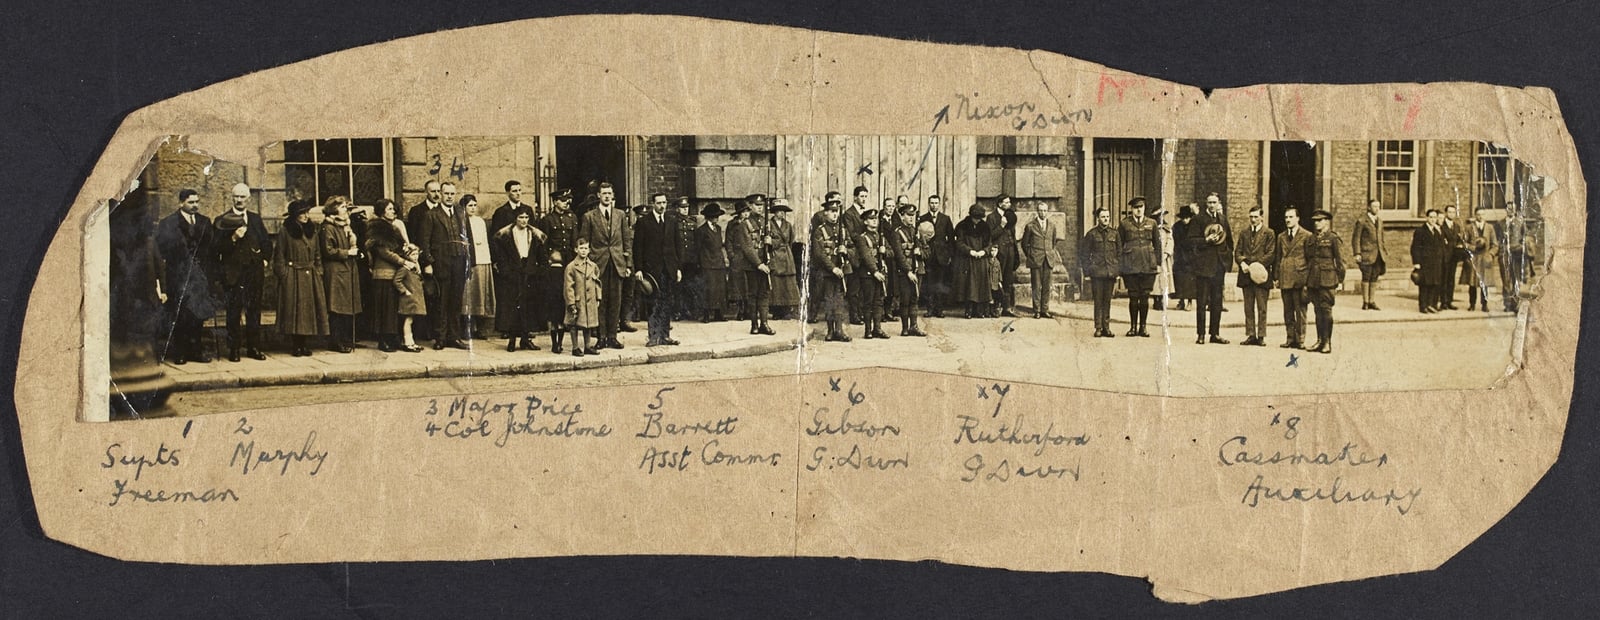 Nixon
G Divn
7
3 4
1
Supts
Freeman
2
Murphy
3 Major Price
4 Col Johnstone
5
Barrett
Asst Commr
x6
Gibson
G. Divn
x7
Rutherford
G Divn
x8
Cassmaker
Auxiliary